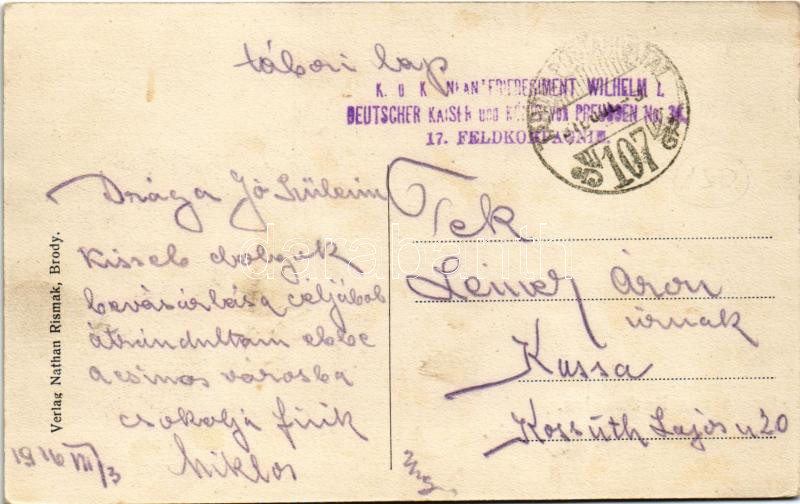 tábori lap
K. U. K. INFANTERIEREGIMENT WILHELM I.
DEUTSCHER KAISER und KÖNIG von PREUSSEN No. 34.
17. FELDKOMPAGNIE.
107
Drága Jó Szüleim
Kisseb dolgok
bevásárlása céljából
átrándultam ebbe
a csinos városba
csokolja fiuk
Miklos
1916 VII/3
Tek
Áron
úrnak
Kassa
Kossúth Lajos u 20
Verlag Nathan Rismak, Brody.
darabanth